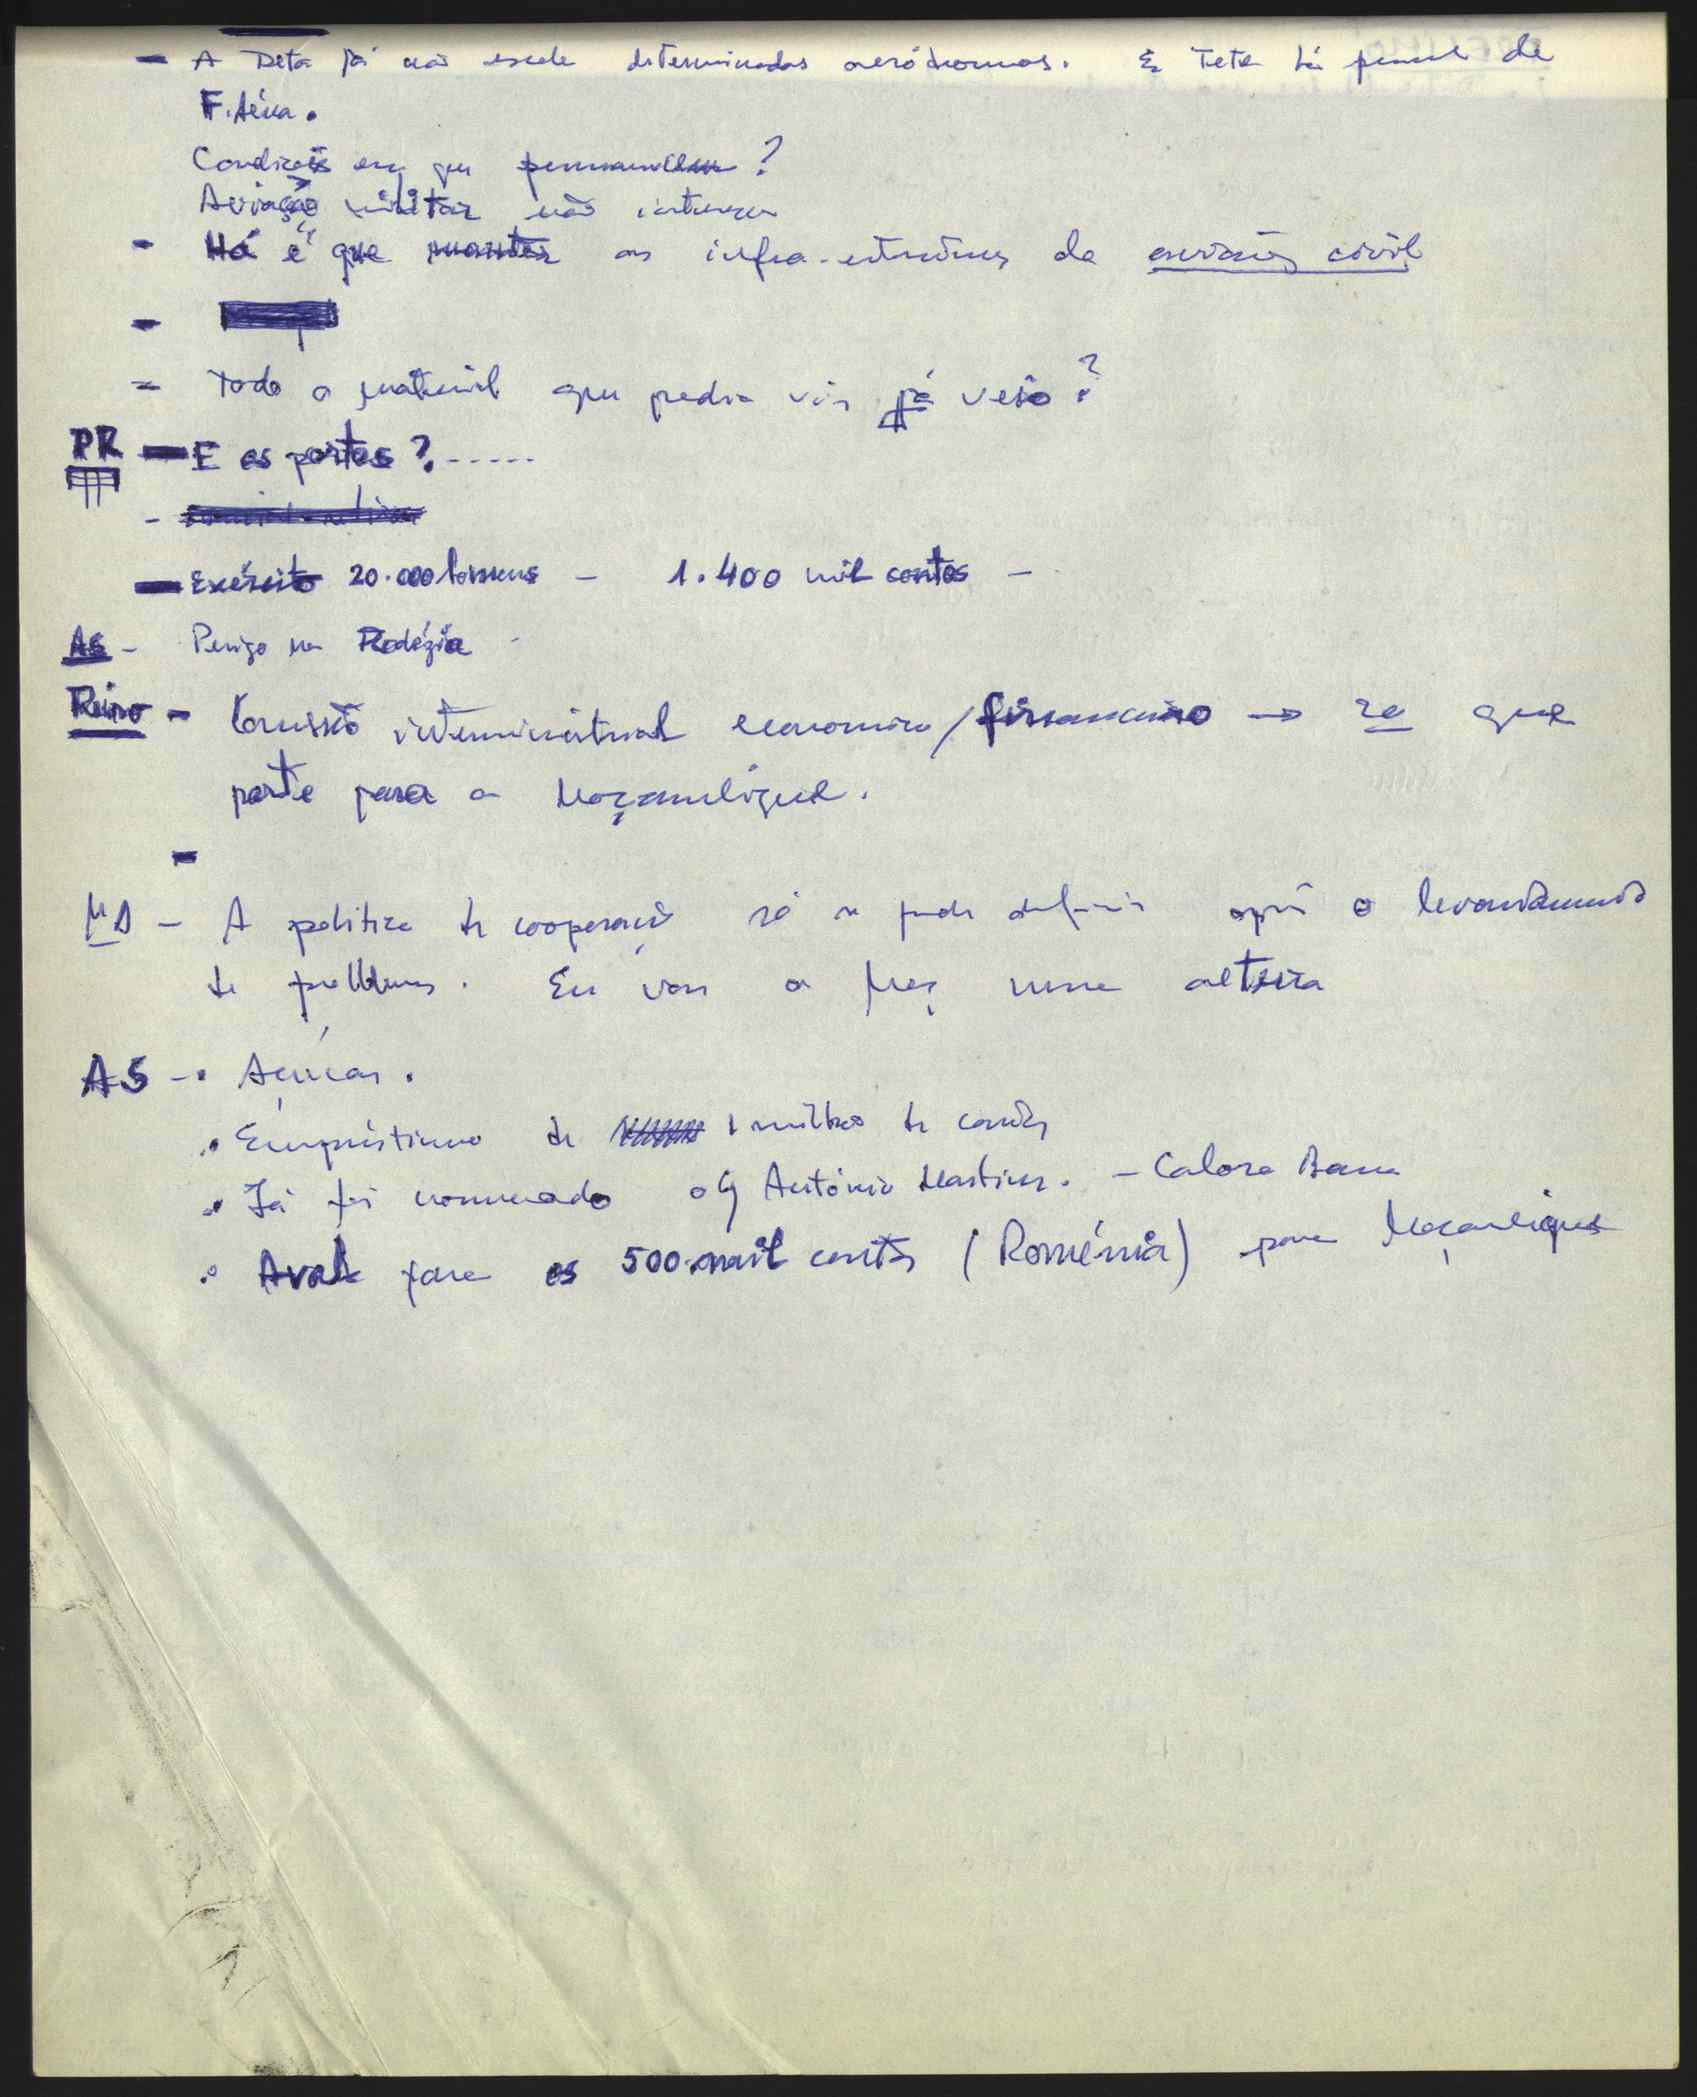 - A Deta já não escala determinados aeródromos. Em Tete há pessoal de
F. Aérea.
Condições em que permanecem?
Aviação militar não interessa
- Há é que manter as infra-estruturas da aviação civil
-
- Todo o material que podia vir já veio?
PR - E os portos?......
-
- Exército 20.000 homens - 1.400 mil contos -
AS - Perigo na Rodézia -
Reino - Comissão interministerial economico/financeiro → 2a que
parte para a Moçambique.
-
MS - A politica de cooperação só se pode definir após o levantamento
de problemas. Eu vou a Moç nessa altura
AS -. Açúcar.
. Empréstimo de 1 milhão de contos
. Já foi nomeado o António Martins. - Cabora Bassa
. Aval para os 500.mil contos (Roménia) para Moçambique